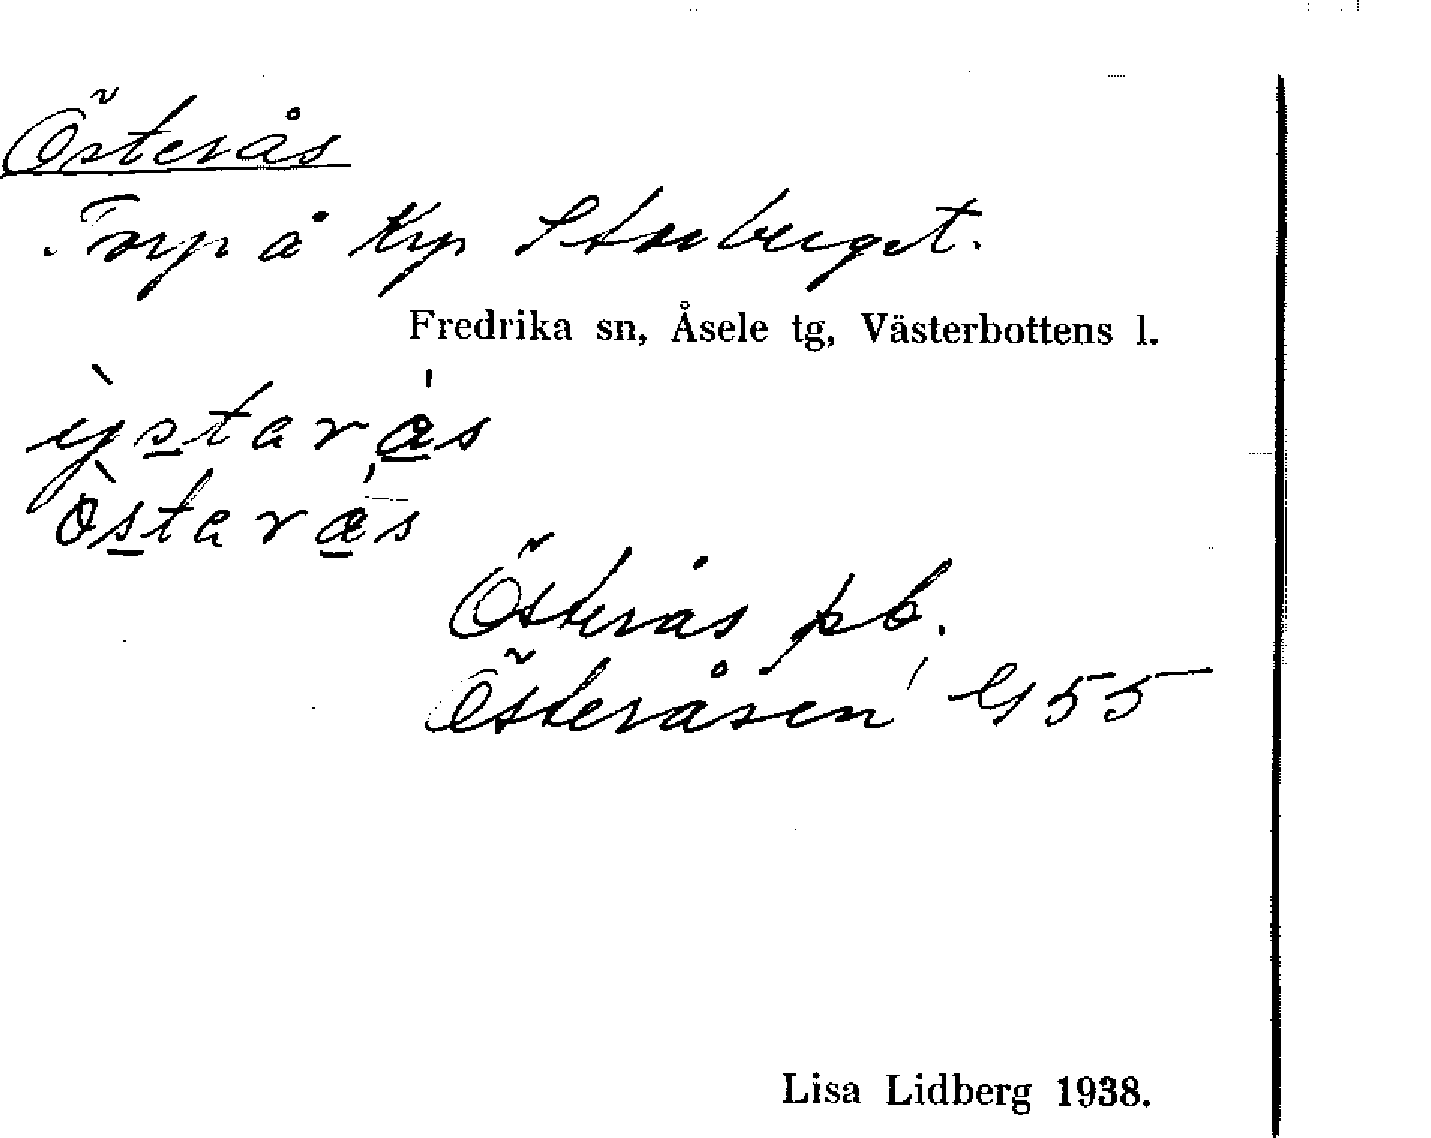 Österås
Torp å Kp Storberget.
Fredrika sn, Åsele tg, Västerbottens l.
ỳstarás
östarás
Österås pb.
Österåsen G 55
Lisa Lidberg 1938.